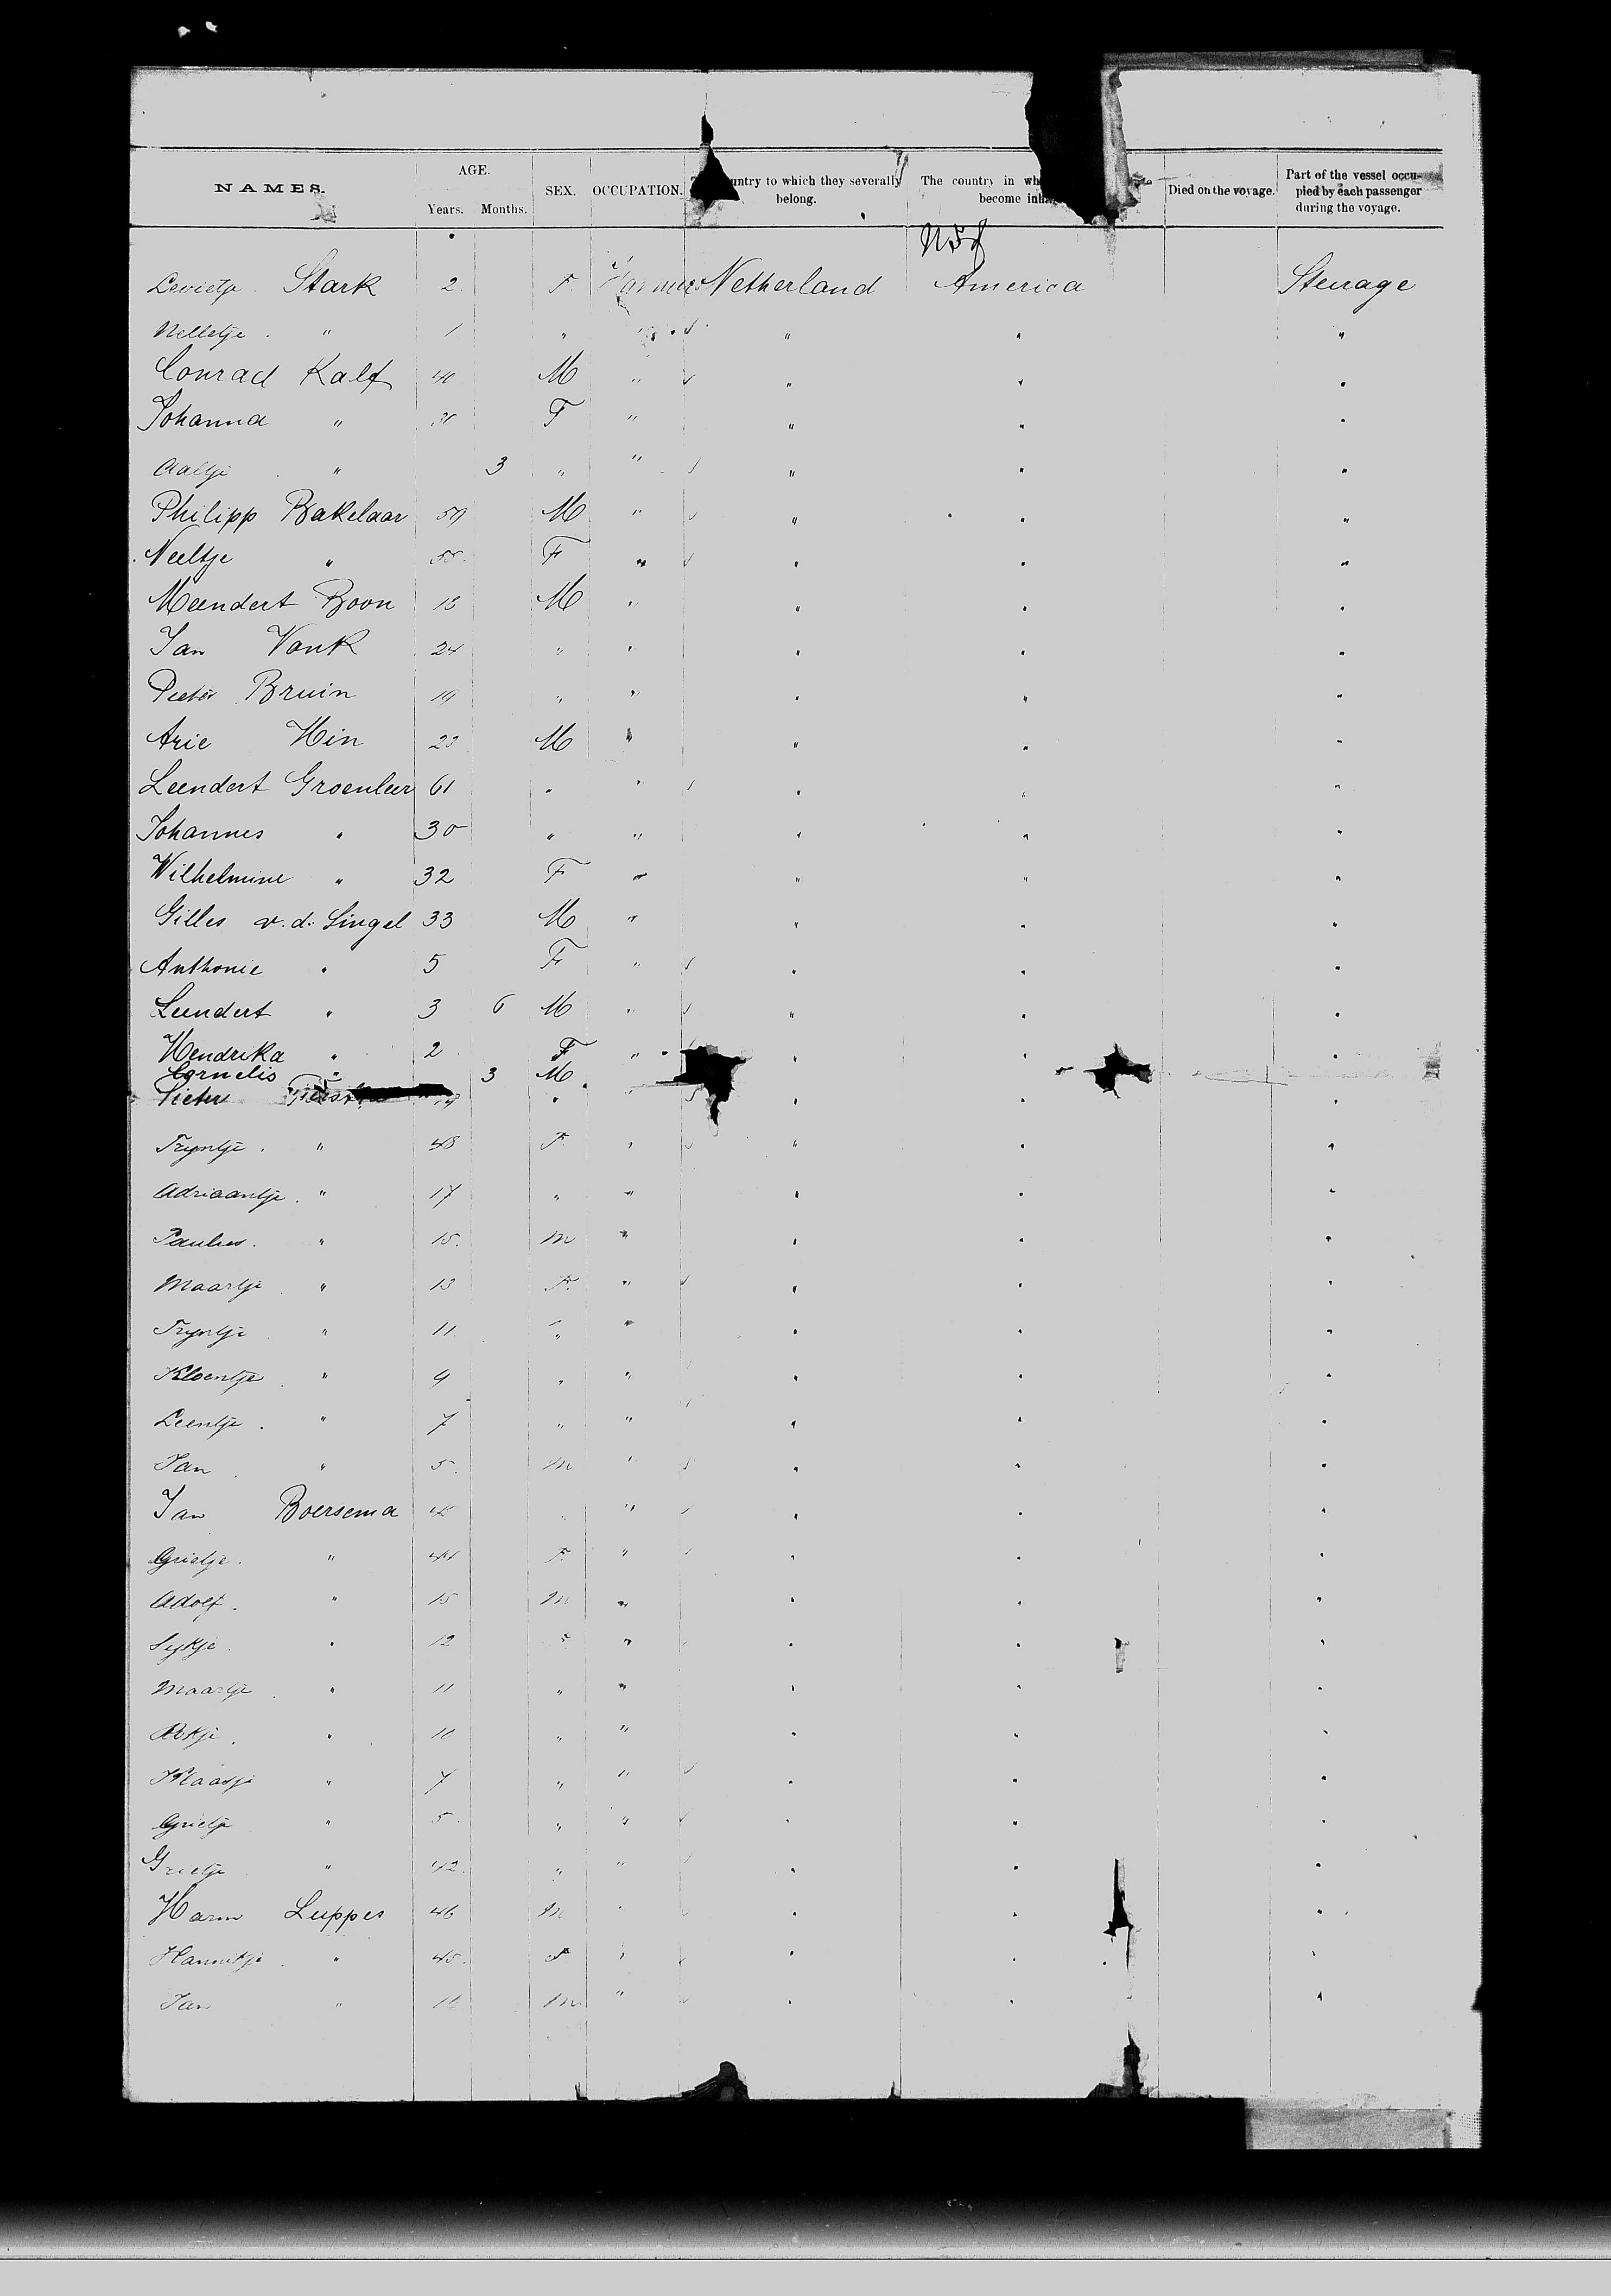 NAMES. AGE. SEX. OCCUPATION. to which they severally belong. The country in become Died on the voyage. Part of the vessel occupied by each passenger during the voyage.
Years. Months.
Stark 2 F. Netherland America Steurage
Nelletje . " 1 " " " " "
Conrad Kalf 40 M " " " "
Johanna " F " " " "
Aaltje " 3 " " " " "
Philipp Bakelaar 59 M " " " "
Neeltje " 55. F " " " "
Meendert Boon 18 M " " " "
Jan Vonk 24 " " " " "
Pieter Bruin 19 " " " " "
Arie Hin 23 M " " " "
Leendert Groenleer 61 " " " " "
Johannes " 30 " " " " "
Wilhelmine " 32 F " " " "
Gilles v. d. Singel 33 M " " " "
Anthonie " 5 F " " " "
Leendert " 3 6 M " " " "
Hendrika " 2 F " " " "
Cornelis " 3 M
Pieter " " " " "
Tryntje . " 48 F. " " " "
Adriaantje . " 17 " " " " "
Paulus. " 15. M " " " "
Maartje . " 13 F. " " " "
Tryntje . " 11. " " " " "
" 9 " " " " "
Leentje . " 7 " " " " "
Jan . " 5. M " " " "
Jan Boersema " " " " "
Grietje . " 44 F. " " " "
Adolf . " 15 M " " " "
" 12 F " " " "
Maartje . " 11 " " " " "
" 10 " " " " "
Klaasje " 7 " " " " "
Grietje " 5. " " " " "
Grietje " 42. " " " " "
Harm Luppes 46 M " " " "
" 45. F " " " "
Jan " M " " " "